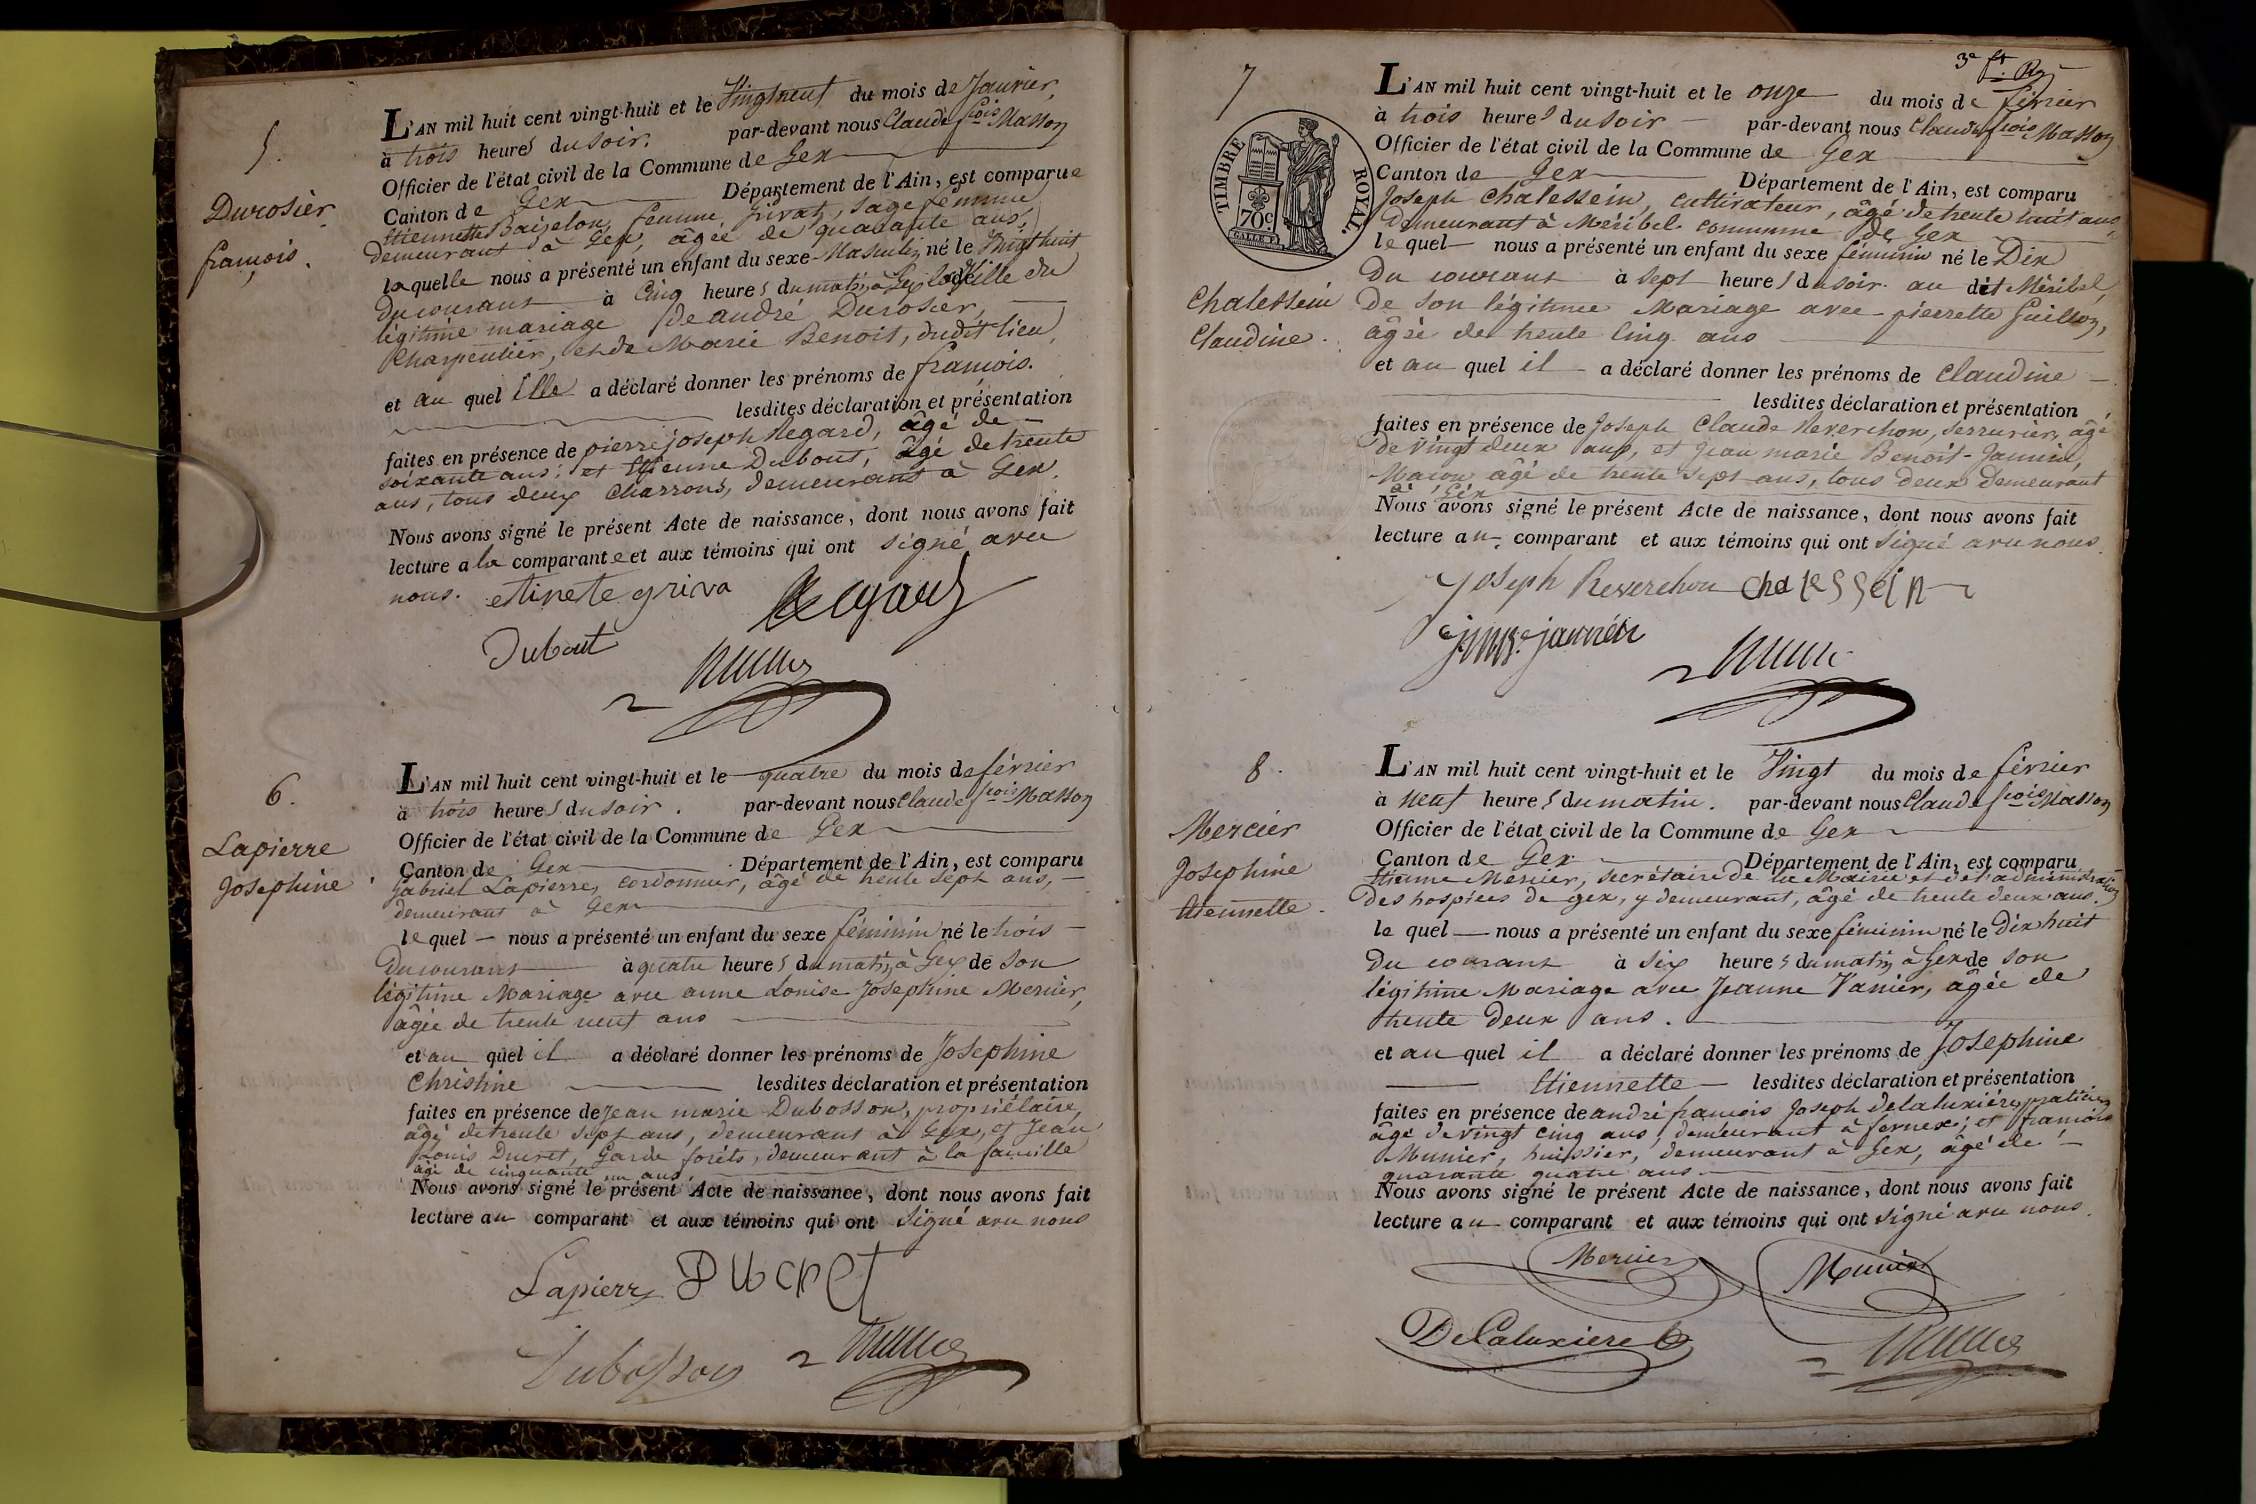 5.
Durosier
françois.
L'AN mil huit cent vingt-huit et le Vingtneuf du mois de Janvier,
à trois heures du soir. par-devant nous Claude fcois Masson
Officier de l'état civil de la Commune de Gex
Canton de Gex Département de l'Ain, est comparue
Etiennette Baizelon, femme Grivat, sage femme
demeurant à Gex, âgée de quarante ans,
laquelle nous a présenté un enfant du sexe Masculin né le Vingthuit
du courant à Cinq heures du matin à Gex de
légitime mariage de andré Durosier,
Charpentier, et de Marie Benoit, dudit lieu,
et au quel Elle a déclaré donner les prénoms de françois.
lesdites déclaration et présentation
faites en présence de pierre joseph Regard, âgé de
soixante ans; et Etienne Dubout, âgé de trente
ans, tous deux Charrons, demeurant à Gex.
Nous avons signé le présent Acte de naissance, dont nous avons fait
lecture a la comparante et aux témoins qui ont signé avec
nous. etinete griva Regard
Dubout
6.
Lapierre
Josephine.
L'AN mil huit cent vingt-huit et le quatre du mois de février
à trois heures du soir. par-devant nous Claude fcois Masson
Officier de l'état civil de la Commune de Gex
Canton de Gex Département de l'Ain, est comparu
Gabriel Lapierre, cordonnier, âgé de trente sept ans,
demeurant à Gex
lequel nous a présenté un enfant du sexe féminin né le trois
du courant à quatre heures du matin à Gex de son
légitime Mariage avec anne Louise Josephine Mercier,
âgée de trente neuf ans
et au quel il a déclaré donner les prénoms de Josephine
Christine lesdites déclaration et présentation
faites en présence de Jean marie Dubosson, propriétaire,
âgé de trente sept ans, demeurant à Gex, et Jean
Louis Ducret, Garde forêts, demeurant à la faucille
âgé de cinquante un ans
Nous avons signé le présent Acte de naissance, dont nous avons fait
lecture au comparant et aux témoins qui ont signé avec nous
Lapierre Ducret
Dubosson
3e ft.
7
TIMBRE ROYAL.
70c
Chalessein
Claudine.
L'AN mil huit cent vingt-huit et le onze du mois de février
à trois heures du soir par-devant nous Claude fcois Masson
Officier de l'état civil de la Commune de Gex
Canton de Gex Département de l'Ain, est comparu
Joseph Chalessein, cultivateur, âgé de trente huit ans,
demeurant à Méribel commune de Gex
lequel nous a présenté un enfant du sexe féminin né le Dix
du courant à sept heures du soir au dit Méribel,
de son légitime Mariage avec pierrette Guillon,
âgée de trente cinq ans
et au quel il a déclaré donner les prénoms de Claudine
lesdites déclaration et présentation
faites en présence de Joseph Claude Reverchon, serrurier, âgé
de vingt deux ans, et Jean marie Benoit-Janniez,
Maçon âgé de trente sept ans, tous deux demeurant
à Gex
Nous avons signé le présent Acte de naissance, dont nous avons fait
lecture au comparant et aux témoins qui ont signé avec nous.
Joseph Reverchon Chalessein
8.
Mercier
Josephine
Etiennette.
L'AN mil huit cent vingt-huit et le Vingt du mois de février
à neuf heures du matin. par-devant nous Claude fcois Masson
Officier de l'état civil de la Commune de Gex
Canton de Gex Département de l'Ain, est comparu
Etienne Mercier, secrétaire de la Mairie et de l'administration
des hospices de gex, y demeurant, âgé de trente deux ans.
le quel nous a présenté un enfant du sexe féminin né le Dix huit
du courant à six heures du matin à Gex de son
légitime Mariage avec Jeanne Vanier, âgée de
trente deux ans.
et au quel il a déclaré donner les prénoms de Josephine
Etiennette lesdites déclaration et présentation
faites en présence de andré françois Joseph delaluxière, praticien
âgé de vingt cinq ans, demeurant à fernex; et françois
Munier, huissier, demeurant à Gex, âgé de
quarante quatre ans
Nous avons signé le présent Acte de naissance, dont nous avons fait
lecture au comparant et aux témoins qui ont signé avec nous.
Mercier Munier
DeLaluxiere